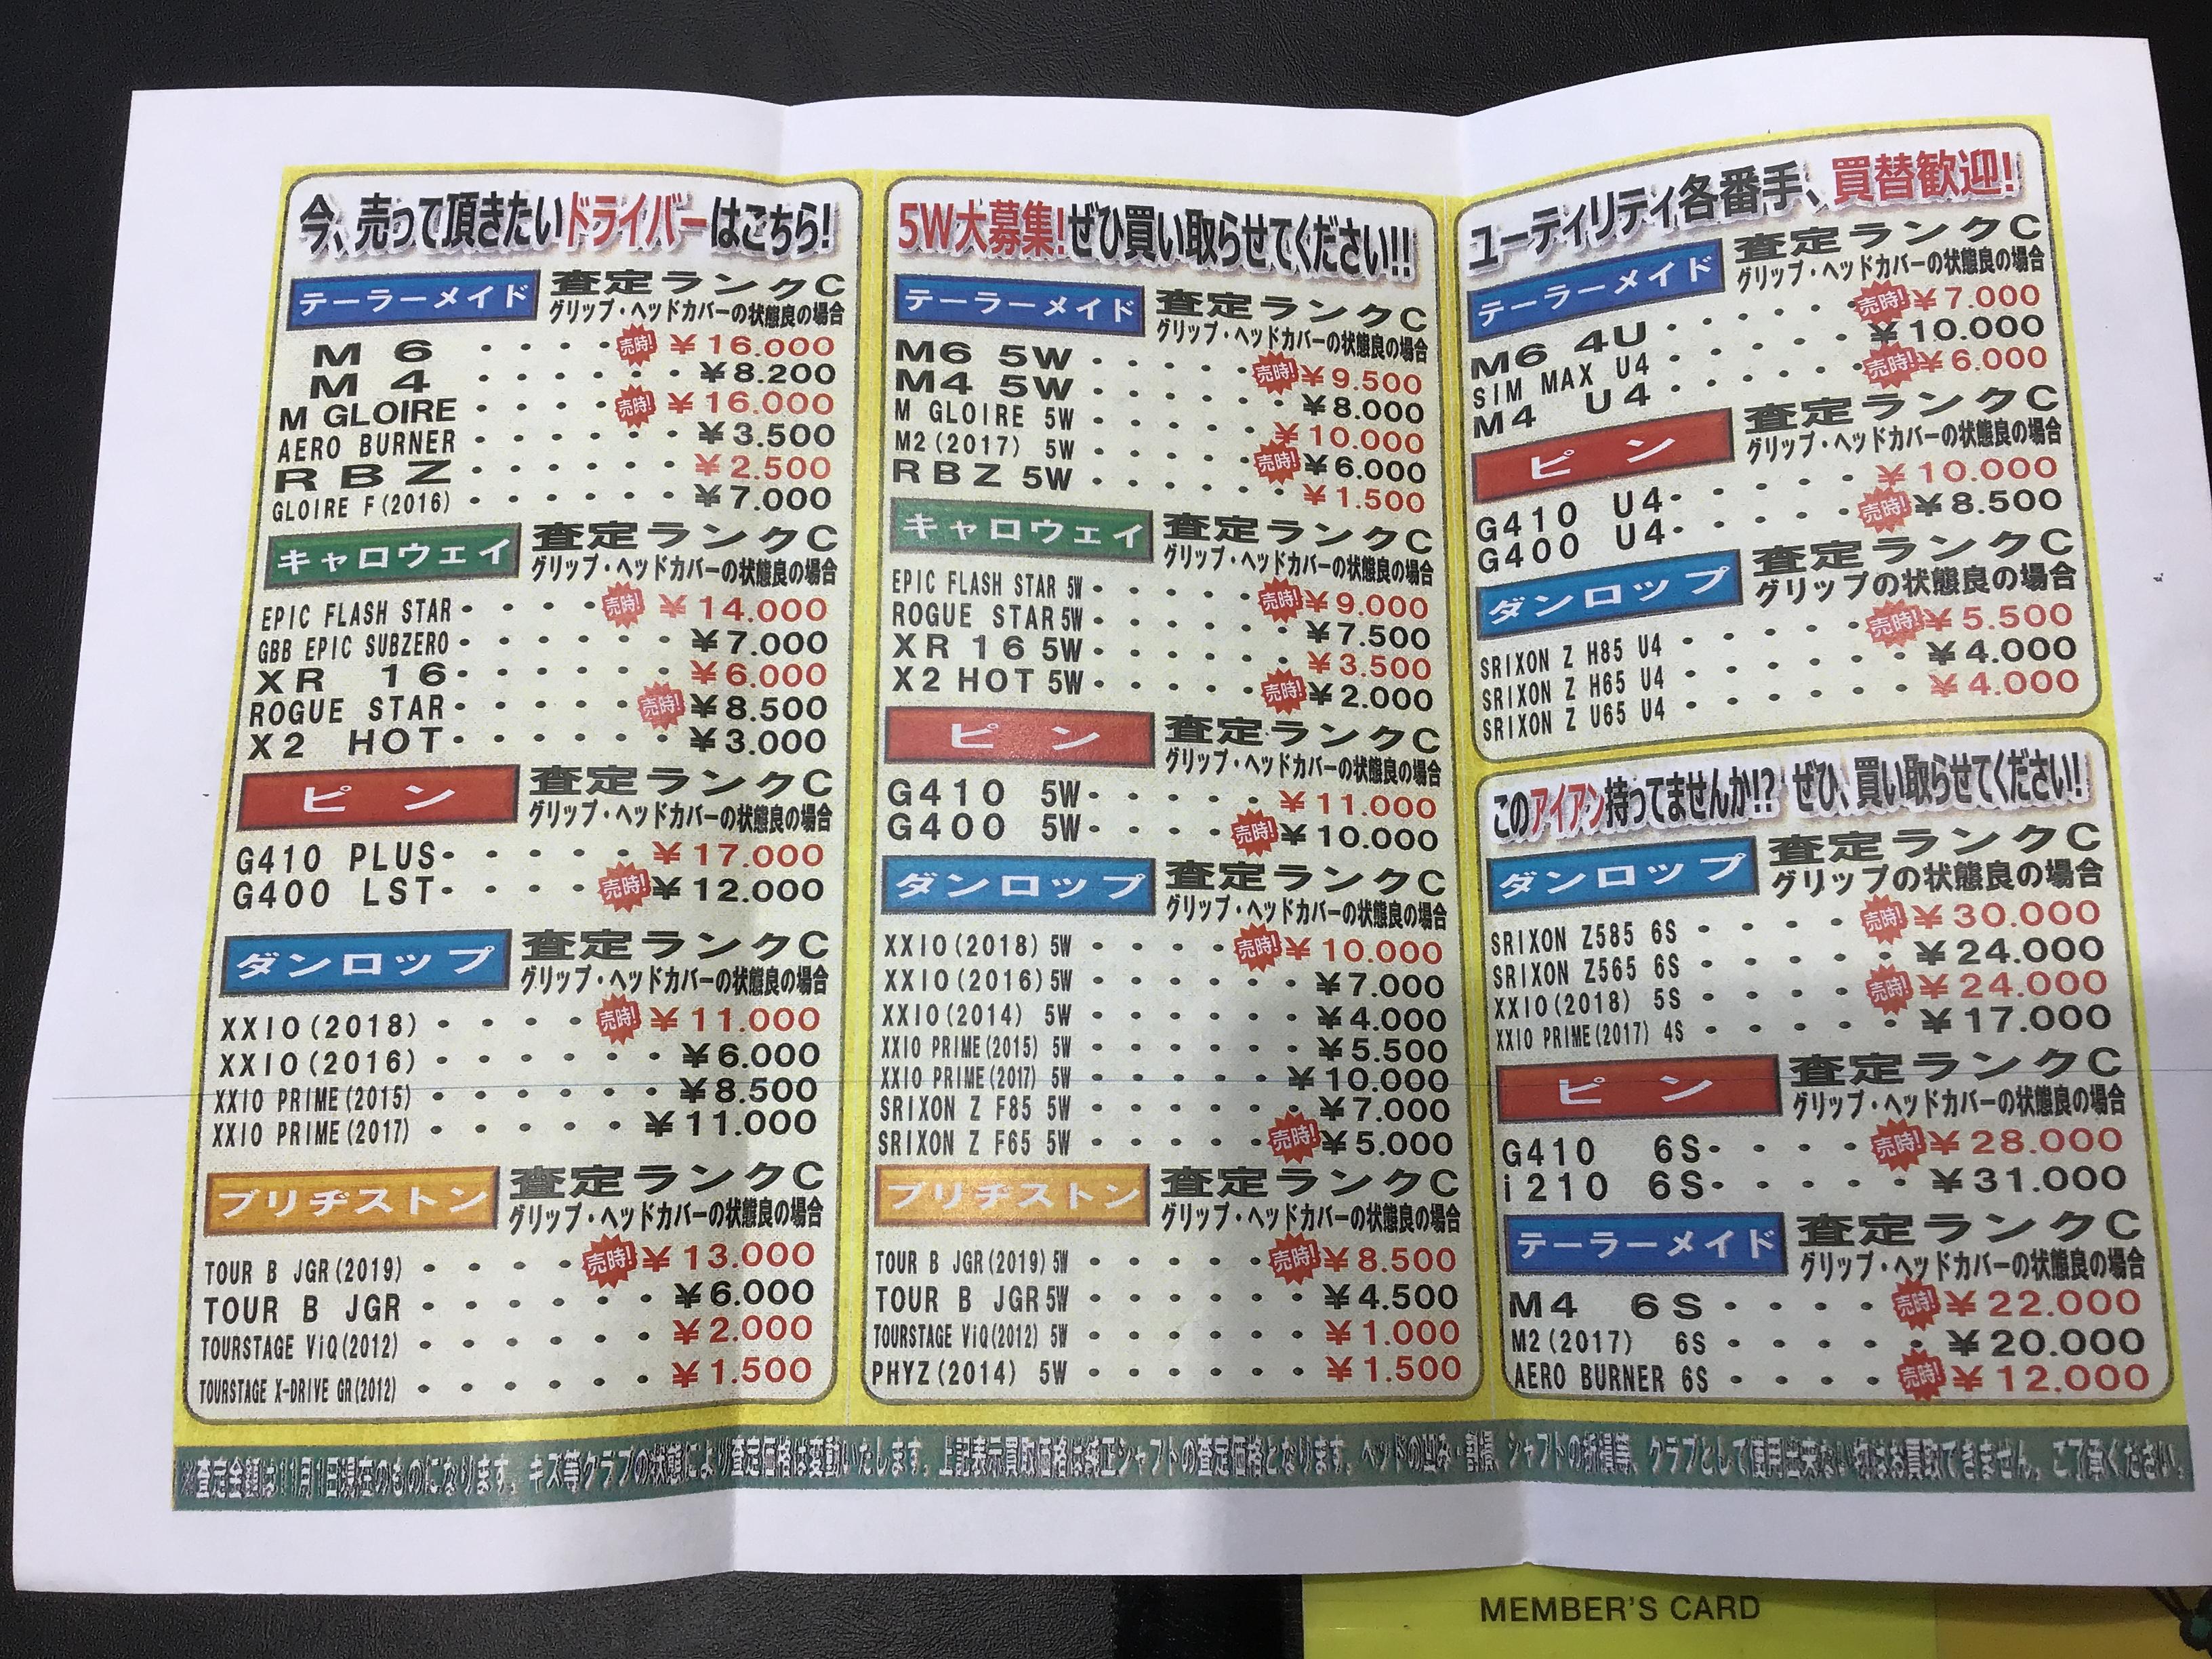 今、売って頂きたいドライバーはこちら!
テーラーメイド 査定ランクC
グリップ・ヘッドカバーの状態良の場合
M 6 ・・・・ 売時! ¥16.000
M 4 ・・・・・・ ¥8.200
M GLOIRE ・・・・ 売時! ¥16.000
AERO BURNER ・・・・・・ ¥3.500
RBZ ・・・・・・ ¥2.500
GLOIRE F(2016) ・・・・・・ ¥7.000
キャロウェイ 査定ランクC
グリップ・ヘッドカバーの状態良の場合
EPIC FLASH STAR・・・・ 売時! ¥14.000
GBB EPIC SUBZERO・・・・・・ ¥7.000
XR 16・・・・・・ ¥6.000
ROGUE STAR・・・・・ 売時! ¥8.500
X2 HOT・・・・・・ ¥3.000
ピン 査定ランクC
グリップ・ヘッドカバーの状態良の場合
G410 PLUS・・・・・ ¥17.000
G400 LST・・・・ 売時! ¥12.000
ダンロップ 査定ランクC
グリップ・ヘッドカバーの状態良の場合
XXIO(2018) ・・・・ 売時! ¥11.000
XXIO(2016) ・・・・・・ ¥6.000
XXIO PRIME(2015) ・・・・・・ ¥8.500
XXIO PRIME(2017) ・・・・・ ¥11.000
ブリヂストン 査定ランクC
グリップ・ヘッドカバーの状態良の場合
TOUR B JGR(2019) ・・・・ 売時! ¥13.000
TOUR B JGR ・・・・・・ ¥6.000
TOURSTAGE ViQ(2012) ・・・・・・ ¥2.000
TOURSTAGE X-DRIVE GR(2012) ・・・・・・ ¥1.500
5W大募集!ぜひ買い取らせてください!!
テーラーメイド 査定ランクC
グリップ・ヘッドカバーの状態良の場合
M6 5W ・・・・ 売時! ¥9.500
M4 5W ・・・・・・ ¥8.000
M GLOIRE 5W ・・・・・ ¥10.000
M2(2017) 5W ・・・・ 売時! ¥6.000
RBZ 5W ・・・・・・ ¥1.500
キャロウェイ 査定ランクC
グリップ・ヘッドカバーの状態良の場合
EPIC FLASH STAR 5W・・・・ 売時! ¥9.000
ROGUE STAR 5W・・・・・・ ¥7.500
XR 16 5W・・・・・・ ¥3.500
X2 HOT 5W・・・・・ 売時! ¥2.000
ピン 査定ランクC
グリップ・ヘッドカバーの状態良の場合
G410 5W・・・・・ ¥11.000
G400 5W・・・・ 売時! ¥10.000
ダンロップ 査定ランクC
グリップ・ヘッドカバーの状態良の場合
XXIO(2018) 5W ・・・・ 売時! ¥10.000
XXIO(2016) 5W ・・・・・・ ¥7.000
XXIO(2014) 5W ・・・・・・ ¥4.000
XXIO PRIME(2015) 5W ・・・・・・ ¥5.500
XXIO PRIME(2017) 5W ・・・・・ ¥10.000
SRIXON Z F85 5W ・・・・・・ ¥7.000
SRIXON Z F65 5W ・・・・・ 売時! ¥5.000
ブリヂストン 査定ランクC
グリップ・ヘッドカバーの状態良の場合
TOUR B JGR(2019) 5W ・・・・・ 売時! ¥8.500
TOUR B JGR 5W ・・・・・・ ¥4.500
TOURSTAGE ViQ(2012) 5W ・・・・・・ ¥1.000
PHYZ(2014) 5W ・・・・・・ ¥1.500
ユーティリティ各番手、買替歓迎!
テーラーメイド 査定ランクC
グリップ・ヘッドカバーの状態良の場合
M6 4U ・・・・・ 売時! ¥7.000
SIM MAX U4 ・・・・・ ¥10.000
M4 U4 ・・・・・ 売時! ¥6.000
ピン 査定ランクC
グリップ・ヘッドカバーの状態良の場合
G410 U4・・・・・ ¥10.000
G400 U4・・・・・ 売時! ¥8.500
ダンロップ 査定ランクC
グリップの状態良の場合
SRIXON Z H85 U4 ・・・・・ 売時! ¥5.500
SRIXON Z H65 U4 ・・・・・・ ¥4.000
SRIXON Z U65 U4 ・・・・・・ ¥4.000
このアイアン持ってませんか!? ぜひ、買い取らせてください!
ダンロップ 査定ランクC
グリップの状態良の場合
SRIXON Z585 6S ・・・・ 売時! ¥30.000
SRIXON Z565 6S ・・・・・ ¥24.000
XXIO(2018) 5S ・・・・ 売時! ¥24.000
XXIO PRIME(2017) 4S ・・・・・ ¥17.000
ピン 査定ランクC
グリップ・ヘッドカバーの状態良の場合
G410 6S・・・・ 売時! ¥28.000
i210 6S・・・・・ ¥31.000
テーラーメイド 査定ランクC
グリップ・ヘッドカバーの状態良の場合
M4 6S・・・・ 売時! ¥22.000
M2(2017) 6S ・・・・・ ¥20.000
AERO BURNER 6S ・・・・ 売時! ¥12.000
※査定金額は11月1日現在のものになります。キズ等クラブの状態により査定価格は変動いたします。上記表示買取価格は純正シャフトの査定価格となります。ヘッドの凹み・割損 シャフトの折損等、クラブとして使用出来ない物はお買取できません。ご了承ください。
MEMBER'S CARD